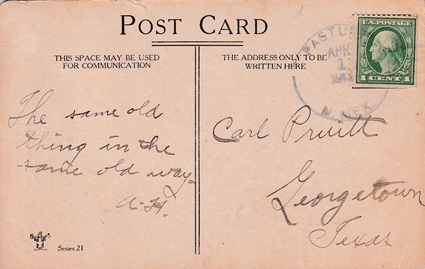 POST CARD
THIS SPACE MAY BE USED
FOR COMMUNICATION
THE ADDRESS ONLY TO BE
WRITTEN HERE
APR
1
N. MEX
U.S. POSTAGE
1 CENT 1
The same old
thing in the
same old way
A.H.
Carl Pruitt
Georgetown
Texas
Series 21